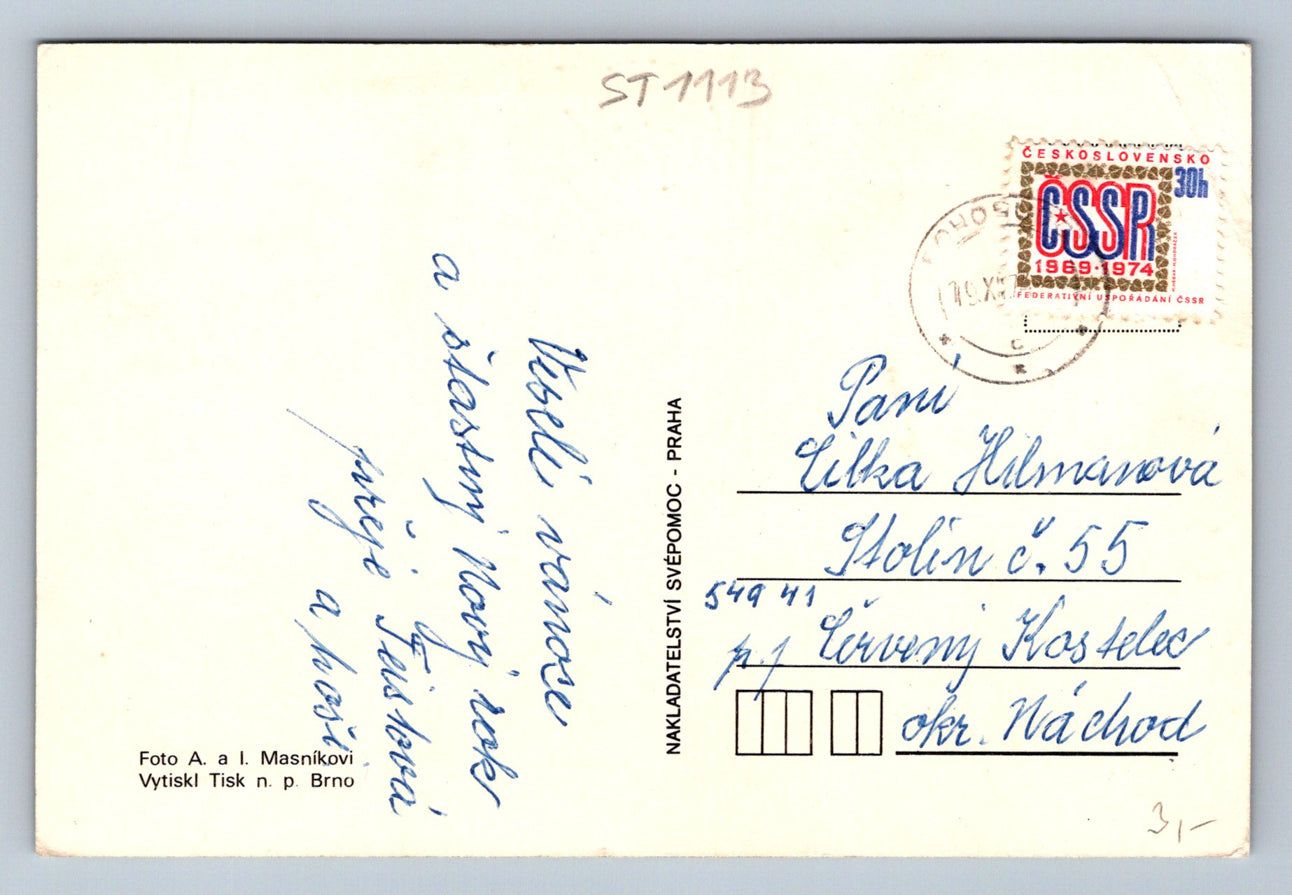 ST 1113
ČESKOSLOVENSKO
30h
ČSSR
1969-1974
FEDERATIVNÍ USPOŘÁDÁNÍ ČSSR
Veselé vánoce
a šťastný Nový rok
přeje
a hoši
NAKLADATELSTVÍ SVÉPOMOC - PRAHA
Paní
Cilka Hilmanová
Stolín č. 55
549 41
p.j Červený Kostelec
okr. Náchod
Foto A. a I. Masníkovi
Vytiskl Tisk n. p. Brno
3,-